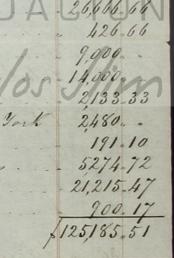 26,666.66
426.66
9,000.
14,000.
2,133.33
York 2480.
191.10
5274.72
21,215.47
900.17
$125,185.51